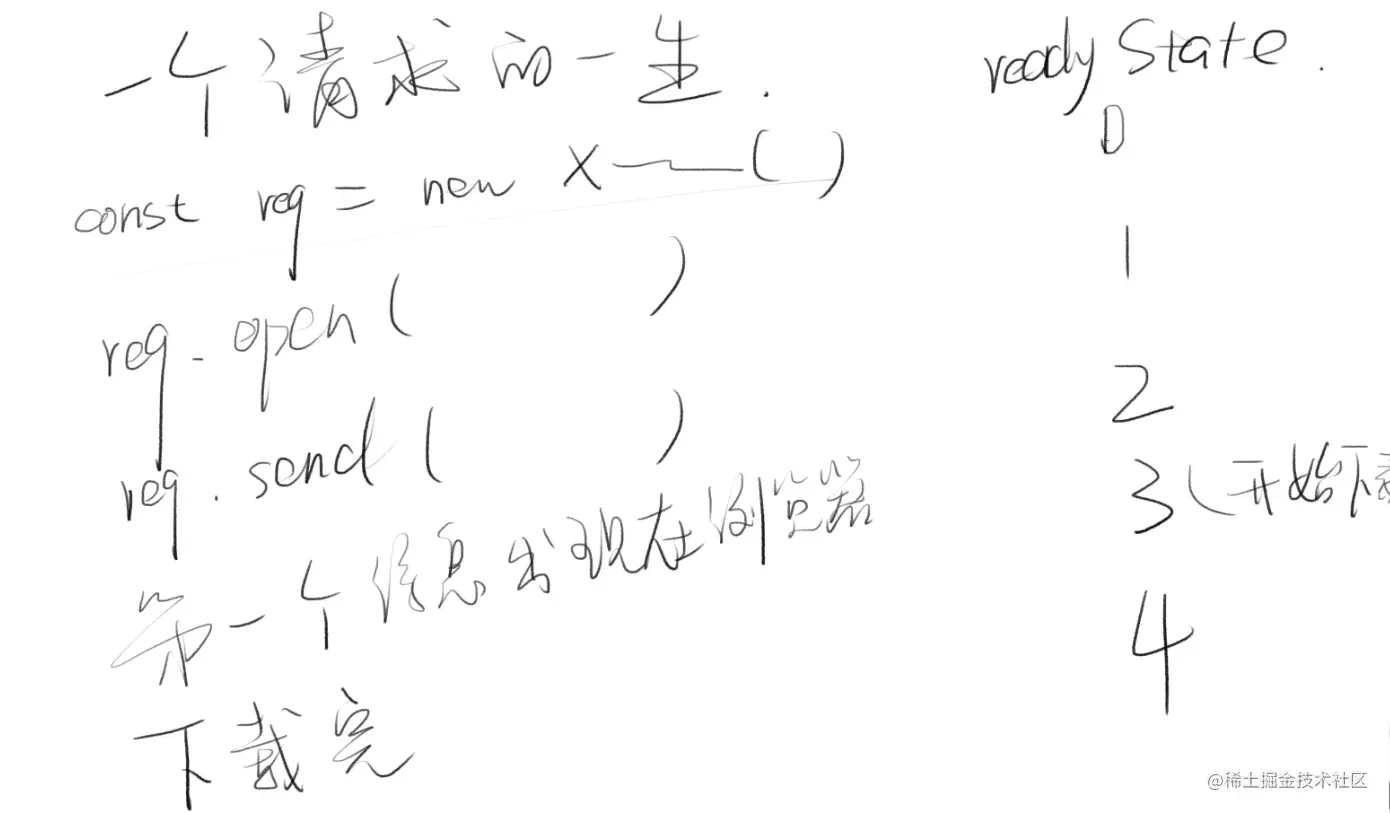 一个请求的一生.
readyState.
const req = new X——( )
0
req.open( )
1
req.send( )
2
第一个信息出现在浏览器
3(开始下载
下载完
4
@稀土掘金技术社区